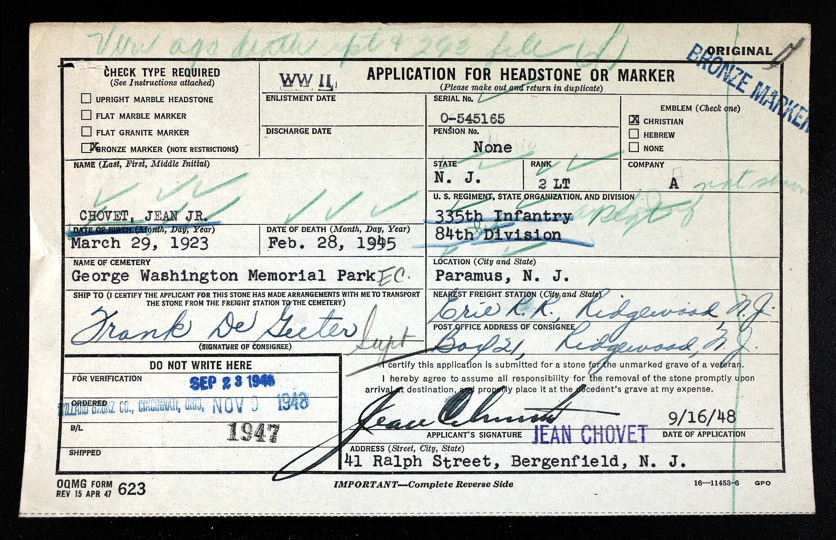 Veri ags death rpt & 293 file
ORIGINAL
BRONZE MARKER
CHECK TYPE REQUIRED
(See Instructions attached)
UPRIGHT MARBLE HEADSTONE
FLAT MARBLE MARKER
FLAT GRANITE MARKER
X BRONZE MARKER (NOTE RESTRICTIONS)
WW II
ENLISTMENT DATE
DISCHARGE DATE
APPLICATION FOR HEADSTONE OR MARKER
(Please make out and return in duplicate)
SERIAL No.
O-545165
PENSION No.
None
EMBLEM (Check one)
X CHRISTIAN
HEBREW
NONE
NAME (Last, First, Middle Initial)
CHOVET, JEAN JR.
STATE
N. J.
RANK
2 LT
COMPANY
A
not shown
U. S. REGIMENT, STATE ORGANIZATION, AND DIVISION
335th Infantry
84th Division
DATE OF BIRTH (Month, Day, Year)
March 29, 1923
DATE OF DEATH (Month, Day, Year)
Feb. 28, 1945
NAME OF CEMETERY
George Washington Memorial Park E.C.
LOCATION (City and State)
Paramus, N. J.
SHIP TO (I CERTIFY THE APPLICANT FOR THIS STONE HAS MADE ARRANGEMENTS WITH ME TO TRANSPORT
THE STONE FROM THE FREIGHT STATION TO THE CEMETERY)
Frank De Geeter Supt
(SIGNATURE OF CONSIGNEE)
NEAREST FREIGHT STATION (City and State)
Erie R.R., Ridgewood N.J.
POST OFFICE ADDRESS OF CONSIGNEE
Box 21, Ridgewood, N.J.
DO NOT WRITE HERE
FOR VERIFICATION
SEP 23 1948
ORDERED
BRONZ CO., CINCINNATI, OHIO, NOV 9 1948
B/L
1947
SHIPPED
I certify this application is submitted for a stone for the unmarked grave of a veteran.
I hereby agree to assume all responsibility for the removal of the stone promptly upon
arrival at destination, and properly place it at the decedent's grave at my expense.
Jean Chovet
APPLICANT'S SIGNATURE
JEAN CHOVET
9/16/48
DATE OF APPLICATION
ADDRESS (Street, City, State)
41 Ralph Street, Bergenfield, N. J.
OQMG FORM
REV 15 APR 47 623
IMPORTANT—Complete Reverse Side
16—11453-6 GPO